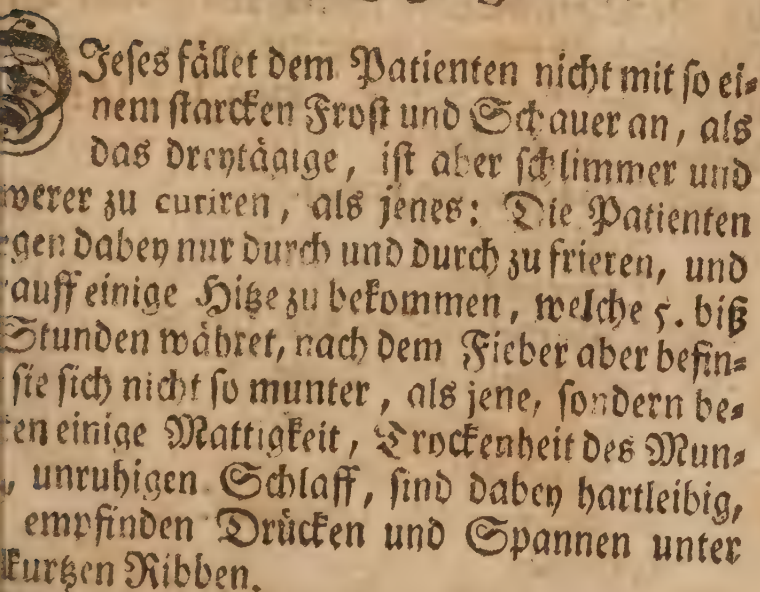 DJeses fället dem Patienten nicht mit so ei-
nem starcken Frost und Schauer an, als
das dreytägige, ist aber schlimmer und
werer zu curiren, als jenes: Die Patienten
gen dabey nur durch und durch zu frieren, und
auff einige Hitze zu bekommen, welche 5. biß
Stunden währet, nach dem Fieber aber befin-
sie sich nicht so munter, als jene, sondern be-
en einige Mattigkeit, Trockenheit des Mun-
, unruhigen Schlaff, sind dabey hartleibig,
empfinden Drücken und Spannen unter
kurtzen Ribben.